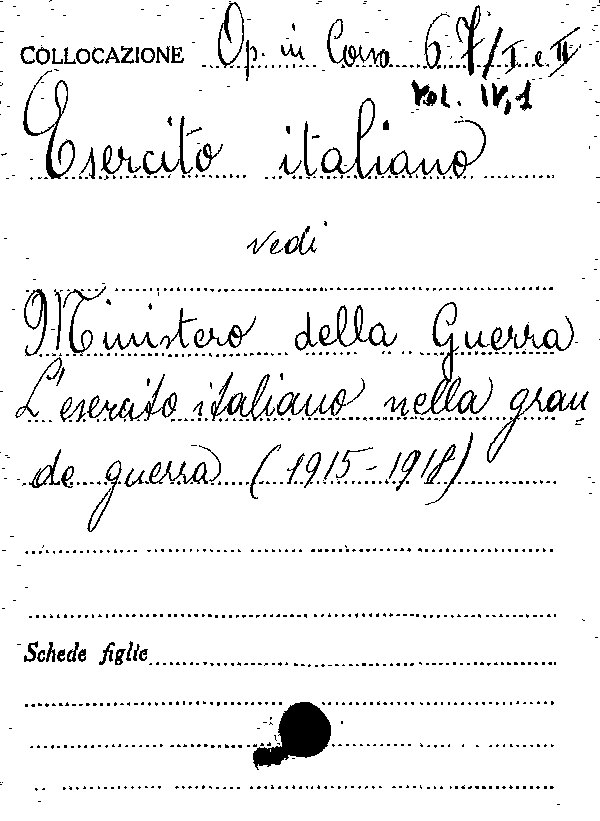 COLLOCAZIONE Op. in Corso 67/I e II
Vol. IV, 1
Esercito italiano
vedi
Ministero della Guerra
L'esercito italiano nella gran=
de guerra (1915-1918)
Schede figlie